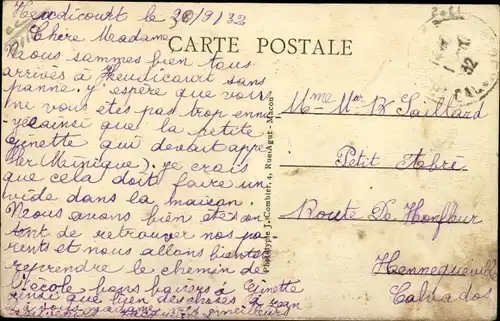 Heudicourt le 30/9/32
Chère Madame
CARTE POSTALE
Nous sommes bien tous
arrivés à Heudicourt sans
panne. j'espère que vous
ne vous êtes pas trop ennu
yé ainsi que la petite
Ginette qui devait appe
ler je crois
que cela doit faire un
vide dans la maison.
Nous avons bien été con
tent de retrouver nos pa
rents et nous allons bientot
reprendre le chemin de
l'école bons baisers à Ginette
ainsi que bien des choses à
meilleurs
Phototypie J. Combier, 4, Rue Agut - Macon
Mme Saillard
Petit Abri
Route De Honfleur
Hennequeville
Calvados
32
CAL